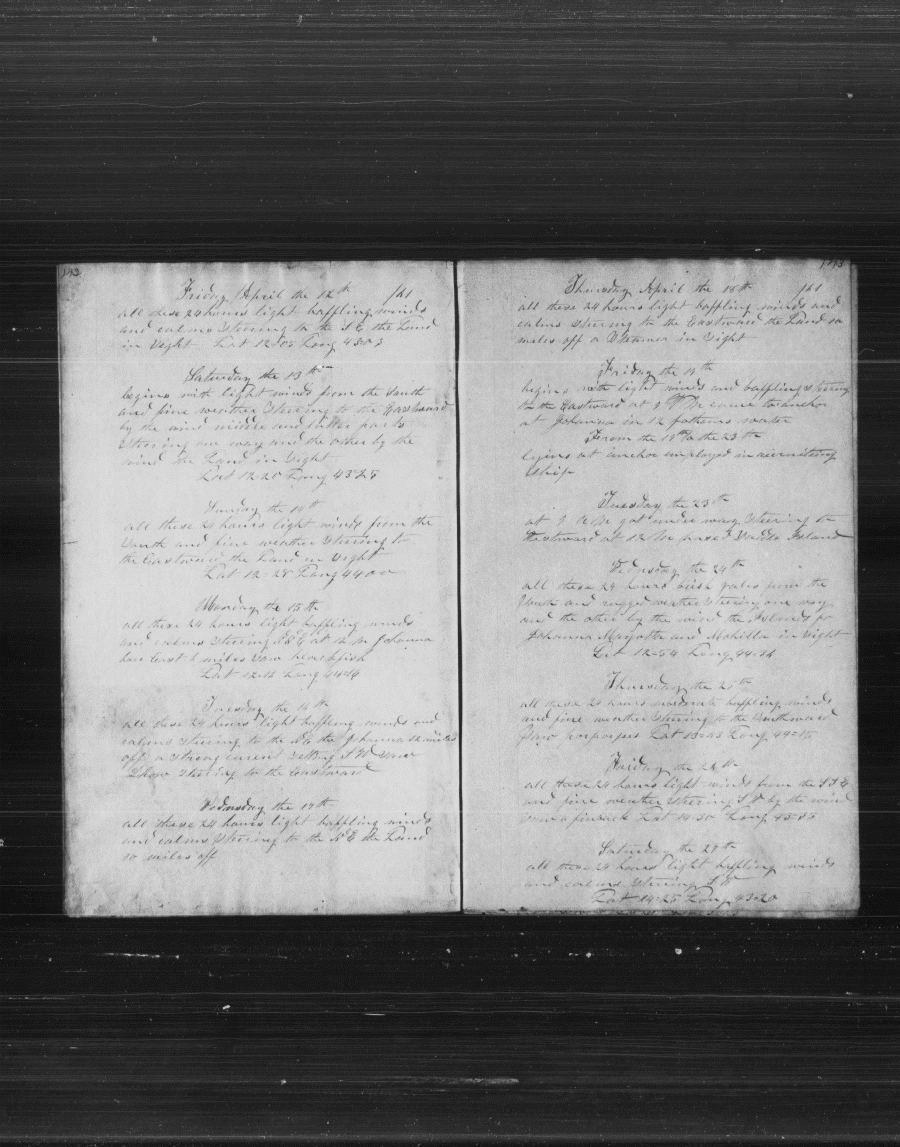 Friday April the 12th 1861
all these 24 hours light baffling winds
and calms Steering to the S E the Land
in Sight Lat 12-05 Long 43-03
Saturday the 13th
begins with light winds from the South
and fine weather Steering to the Eastward
by the wind middle and latter parts
Steering one way and the other by the
wind the Land in Sight
Lat 12-20 Long 43-25
Sunday the 14th
all these 24 hours light winds from the
South and fine weather Steering to
the Eastward the Land in Sight
Lat 12-28 Long 44-00
Monday the 15th
all these 24 hours light baffling winds
and calms Steering at Johanna
bore East miles Saw blackfish
Lat 12-12 Long 44-14
Tuesday the 16th
all these 24 hours light baffling winds and
calms Steering to the Johanna 12 miles
off a Strong current Setting S W Saw
Steering to the Eastward
Wednesday the 17th
all these 24 hours light baffling winds
and calms Steering to the N E the Land
10 miles off
Thursday April the 18th 1861
all these 24 hours light baffling winds and
calms Steering to the Eastward the Land 10
miles off a Steamer in Sight
Friday the 19th
begins with light winds and baffling Steering
to the Eastward at P M came to anchor
at Johanna in 12 fathoms water
From the 19 to the 23th
begins at anchor employed in recruiting
Ship
Tuesday the 23th
at 9 A M got under way Steering to
Westward at 12 M passed Saddle Island
Wednesday the 24th
all these 24 hours brisk gales from the
South and rugged weather Steering one way
and the other by the wind the Islands
Johanna Mayotte and Mohilla in Sight
Lat 12-54 Long 44-
Thursday the 25th
all these 24 hours moderate baffling winds
and fine weather Steering to the Southward
Saw porpoises Lat 13-43 Long 44-15
Friday the 26th
all these 24 hours light winds from the S S E
and fine weather Steering S W by the wind
Saw a finback Lat 14-30 Long 43-
Saturday the 27th
all these 24 hours light baffling winds
and calms Steering S W
Lat 14-25 Long 43-20